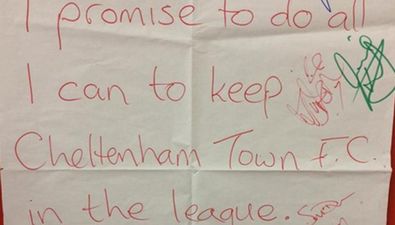 I promise to do all
I can to keep
Cheltenham Town F.C.
in the league.